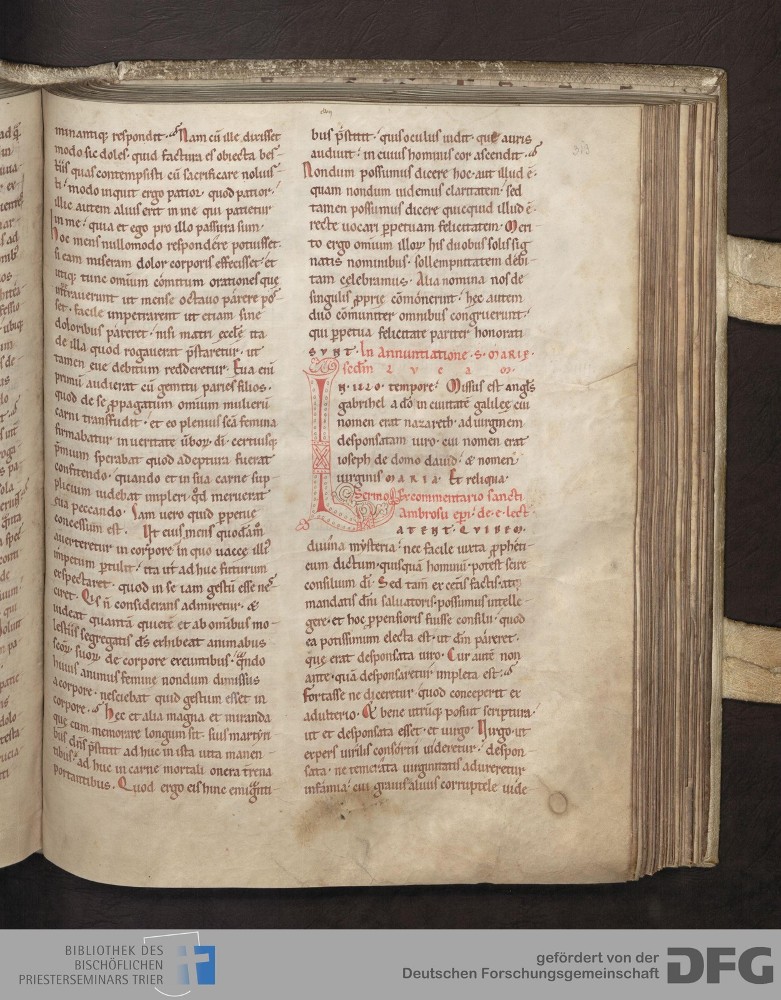 minantiq; respondit. Nam cū ille dixisset
modo sic doles. quid factura es obiecta bes-
tiis quas contempsisti cū sacrificare noluis-
ti. modo inquit ergo patior. quod patior.
illic autem alius erit in me qui patietur
in me. quia et ego pro illo passura sum.
Hoc mens nullomodo respondere potuisset.
si eam miseram dolor corporis effecisset. et
utiq; tunc omnium comitum orationes que
ut mense octauo parere pos-
set. facile impetrarent ut etiam sine
doloribus pareret. nisi matri ecclę ita
de illa quod rogauerat pstaretur. ut
tamen eue debitum redderetur. Eua enī
primū audierat cū gemitu paries filios.
quod de se ppagatum omnium mulierū
carni transfudit. et eo plenius scā femina
firmabatur in ueritate uboꝝ dī. certiusq;
pmium sperabat quod adeptura fuerat
confitendo. quando et in sua carne sup-
plicium uidebat impleri. qd meruerat
eua peccando. Iam uero quid ppetue
concessum est. Vt eius mens quodāmō
auerteretur in corpore in quo uaccę illī
impetum ptulit. ita ut adhuc futurum
expectaret. quod in se iam gestū esse nes-
ciret. Qis ñ considerans admiretur. &
uideat quantā quietē et ab omnibus mo-
lestiis segregatis ds̄ exhibeat animabus
scōꝝ suoꝝ de corpore exeuntibus. qndo
huius animus femine nondum dimissus
a corpore. nesciebat quid gestum esset in
corpore. Hęc et alia magna et miranda
quę cum memorare longum sit. suis martiri
bus dn̄s pstitit ad huc in ista uita manen-
tibus. ad huc in carne mortali onera trena
portantibus. Quod ergo eis hinc emigti-
bus pstitit. quis oculus uidit. quę auris
audiuit. in cuius hominis cor ascendit.
Nondum possumus dicere hoc aut illud ē.
quam nondum uidemus claritatem. sed
tamen possumus dicere quicquid illud ē.
recte uocari ppetuam felicitatem. Meri-
to ergo omnium illoꝝ his duobus solis sig
natis nominibus. sollempnitatem debi-
tam celebramus. Alia nomina nos de
singulis pprie cōmonerint. hęc autem
duo cōmuniter omnibus congruerunt.
qui ppetua felicitate pariter honorati
SVNT. In Annuntiatione. S. MARIĘ.
sedm LVCAM.
IN ILLO tempore. Missus est angls
gabrihel a dō in ciuitatē galileę cui
nomen erat nazareth. ad uirginem
desponsatam uiro. cui nomen erat
ioseph de domo dauid. & nomen
uirginis MARIA. Et reliqua.
Sermo. Ex commentario sancti
Ambrosii epi. de. e. lect.
LATENT. QVIDEM.
diuina mysteria. nec facile iuxta pphēti-
cum dictum. quisquā hominū potest scire
consilium dī. Sed tam̄ ex cetis factis. atq;
mandatis dn̄i saluatoris. possumus intelle-
gere. et hoc ppensioris fuisse consilii. quod
ea potissimum electa est. ut dn̄m pareret.
quę erat desponsata uiro. Cur autē non
ante. quā desponsaretur impleta est.
Fortasse ne diceretur quod conceperit ex
adulterio. & bene utruq; posuit scriptura.
ut et desponsata esset. et uirgo. Virgo. ut
expers uirilis consortii uideretur. despon-
sata. ne temerata uirginitatis adureretur
infamia. cui grauis aluus corruptele uide
313
BIBLIOTHEK DES
BISCHÖFLICHEN
PRIESTERSEMINARS TRIER
gefördert von der
Deutschen Forschungsgemeinschaft
DFG